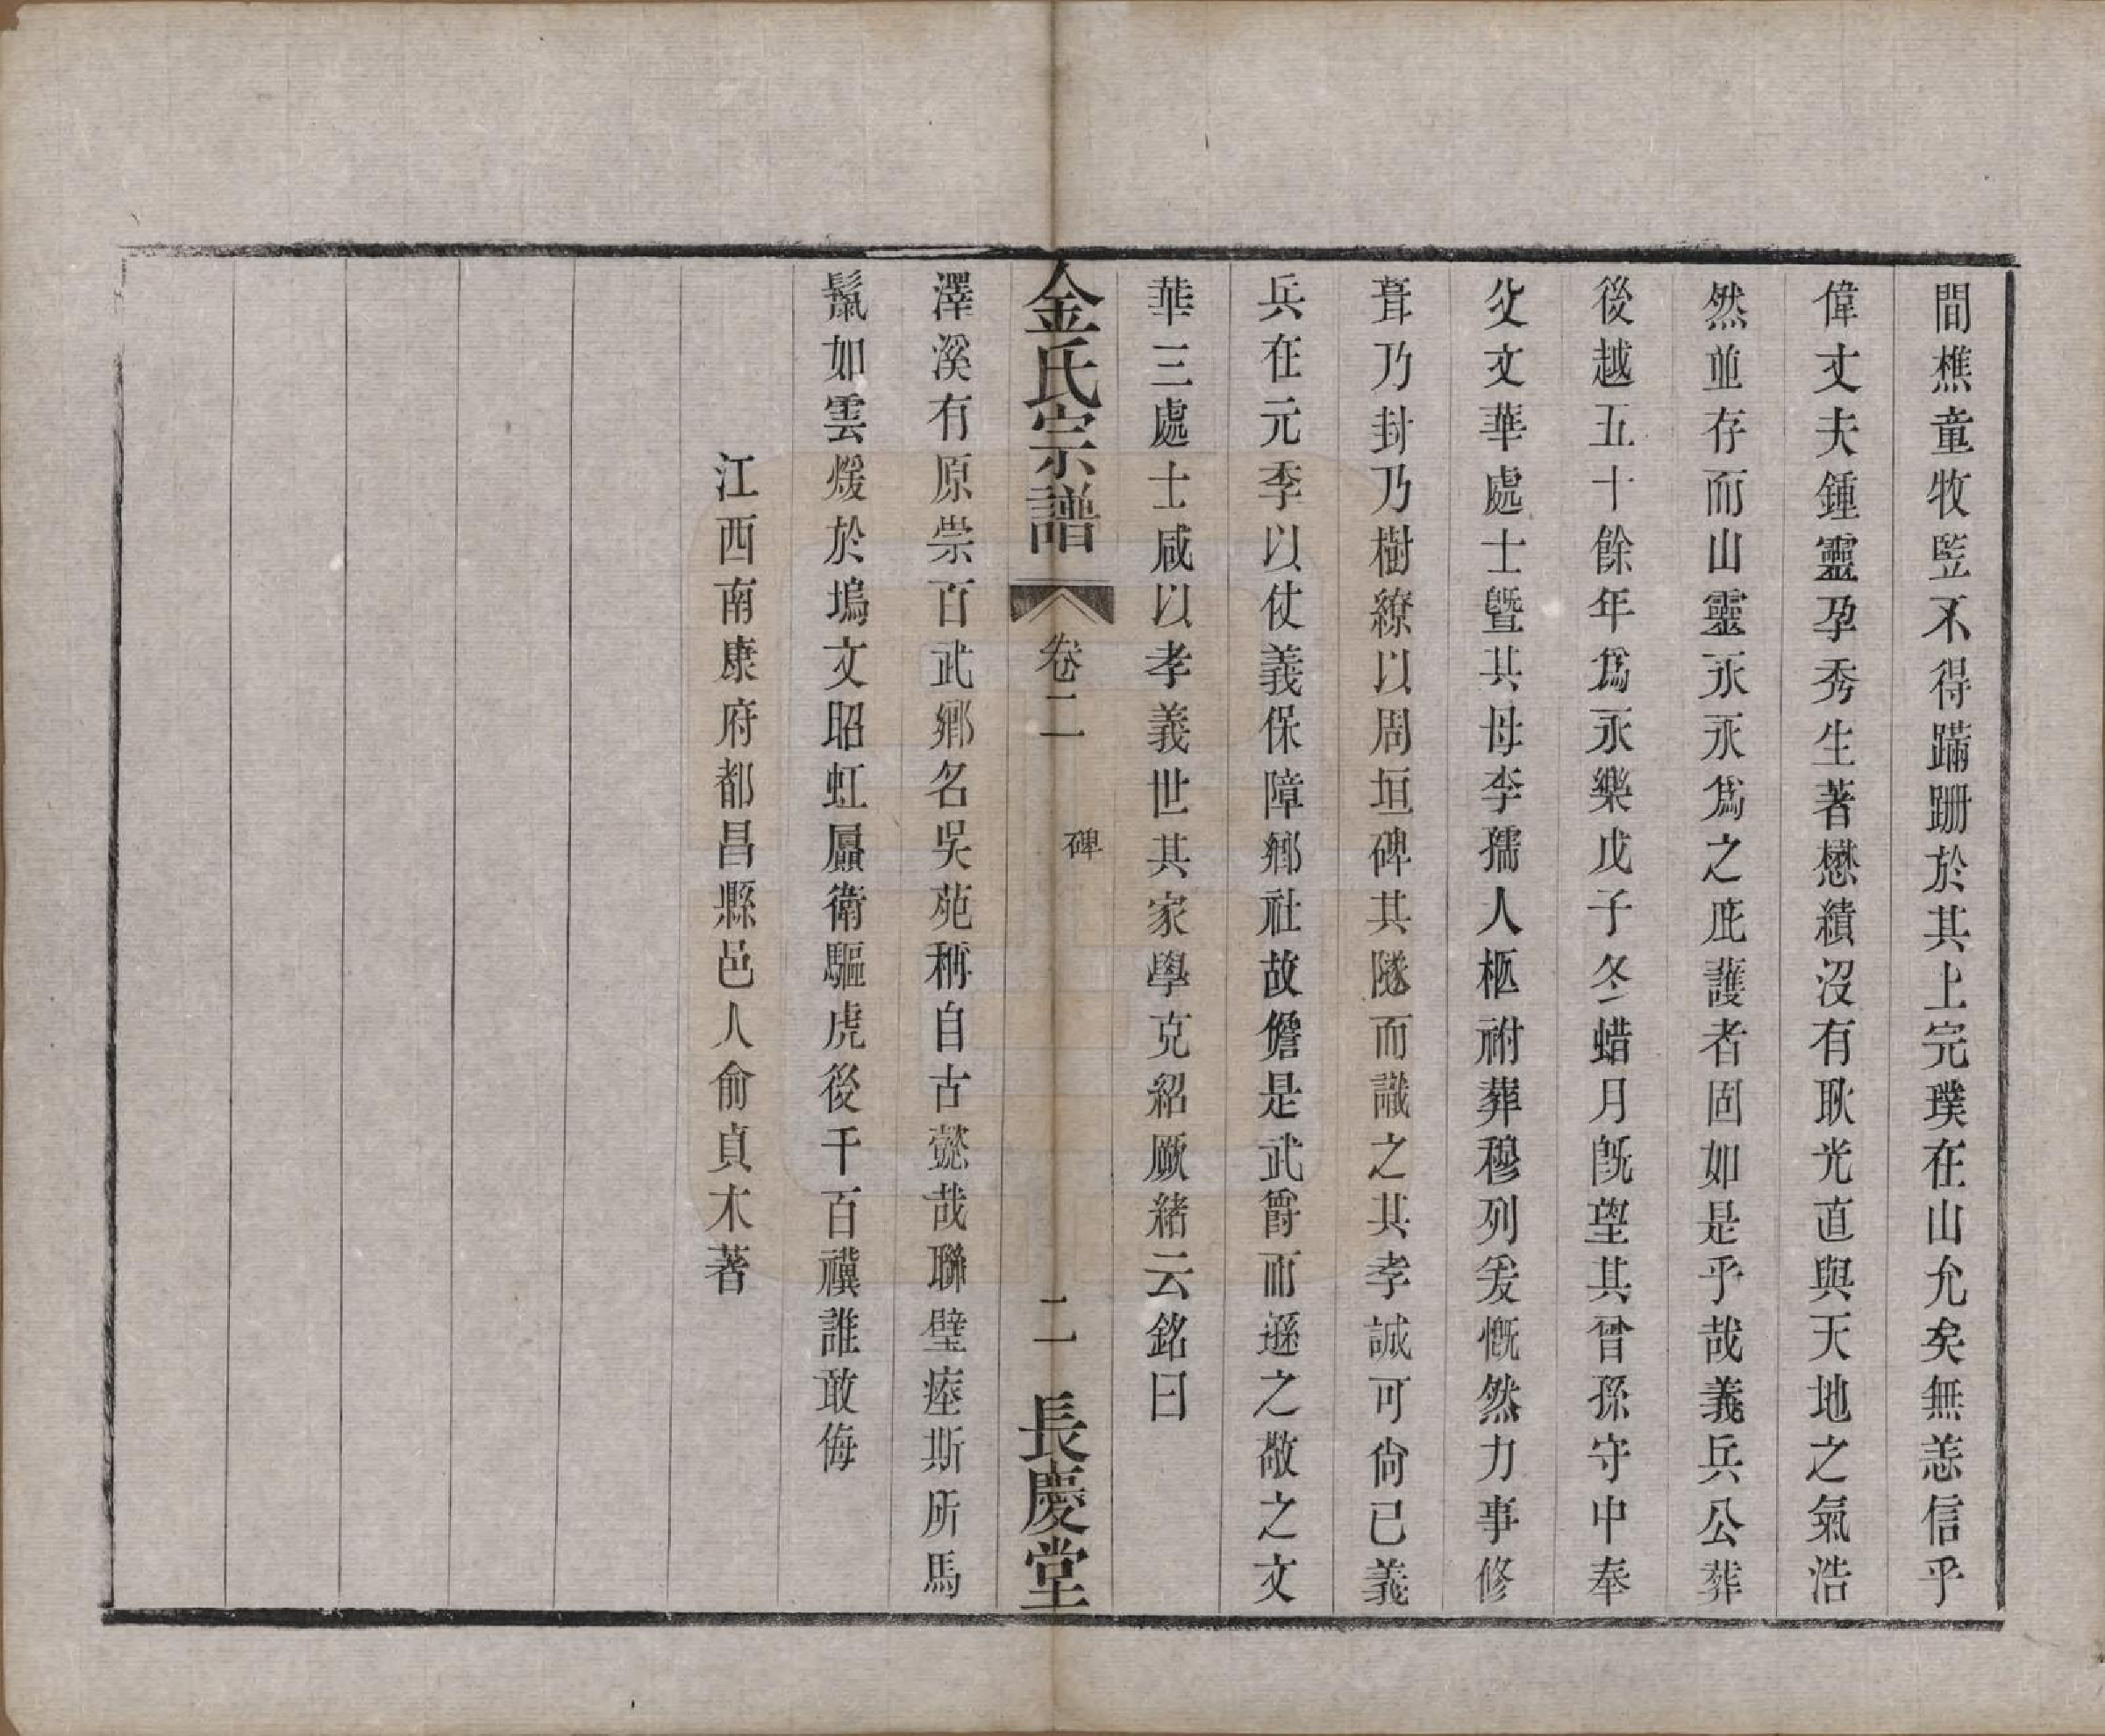 間樵童牧竪不得蹣跚於其上完璞在山允矣無恙信乎
偉丈夫鍾靈孕秀生著懋績沒有耿光直與天地之氣浩
然並存而山靈永永爲之庇護者固如是乎哉義兵公葬
後越五十餘年爲永樂戊子冬蜡月旣望其曾孫守中奉
父文華處士曁其母李孺人柩祔葬穆列爰慨然力事修
葺乃封乃樹繚以周垣碑其隧而識之其孝誠可尙已義
兵在元季以仗義保障鄕社故儋是武爵而遜之敵之文
華三處士咸以孝義世其家學克紹厥緒云銘曰
金氏宗譜 卷二 碑 二 長慶堂
澤溪有原崇百武鄕名吳苑稱自古懿哉聯璧瘞斯所馬
鬛如雲煖於塢文昭虹贔衛驅虎後千百禩誰敢侮
江西南康府都昌縣邑人俞貞木著